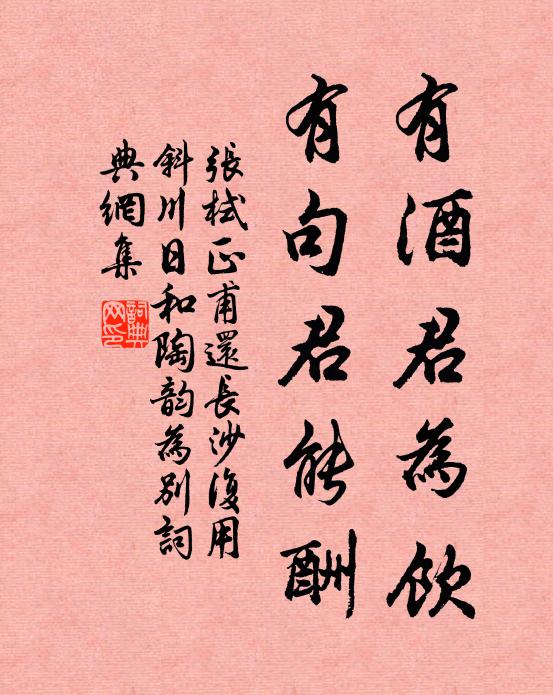 有酒君為飲
有句君能酬
張栻正甫還長沙復用
斜川日和陶韵為別詞
典網集
詞典
网印